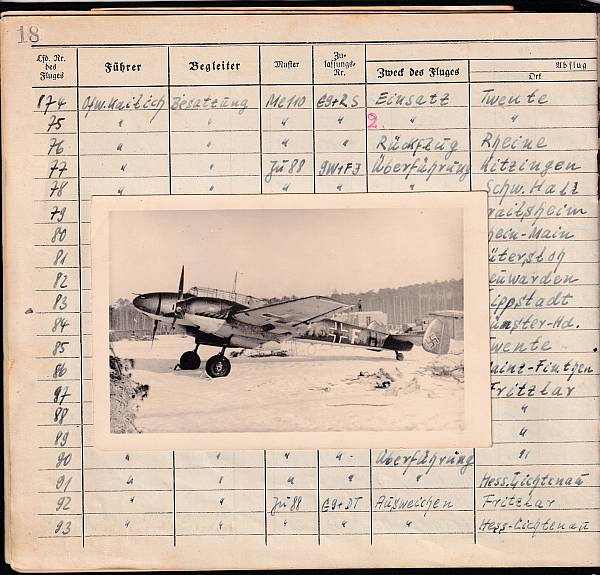 18
Lfd. Nr. des Fluges Führer Begleiter Muster Zulassungs-Nr. Zweck des Fluges Abflug
Ort
174 Ofw. Hailich Besatzung Me 110 G9+RS Einsatz Twente
75 " " " " 2. " "
76 " " " " Rückflug Rheine
77 " " Ju 88 9W+FJ Überführung Kitzingen
78 " " " " " Schw. Hall
79 railsheim
80 hein-Main
81 ütersloh
82 euwarden
83 ippstadt
84 ünster-Hd.
85 wente
86 ainz-Finthen
87 Fritzlar
88 "
89 "
90 " " " " Überführung "
91 " " " " " Hess. Lichtenau
92 " " Ju 88 G9+DT Ausweichen Fritzlar
93 " " " " " Hess-Lichtenau